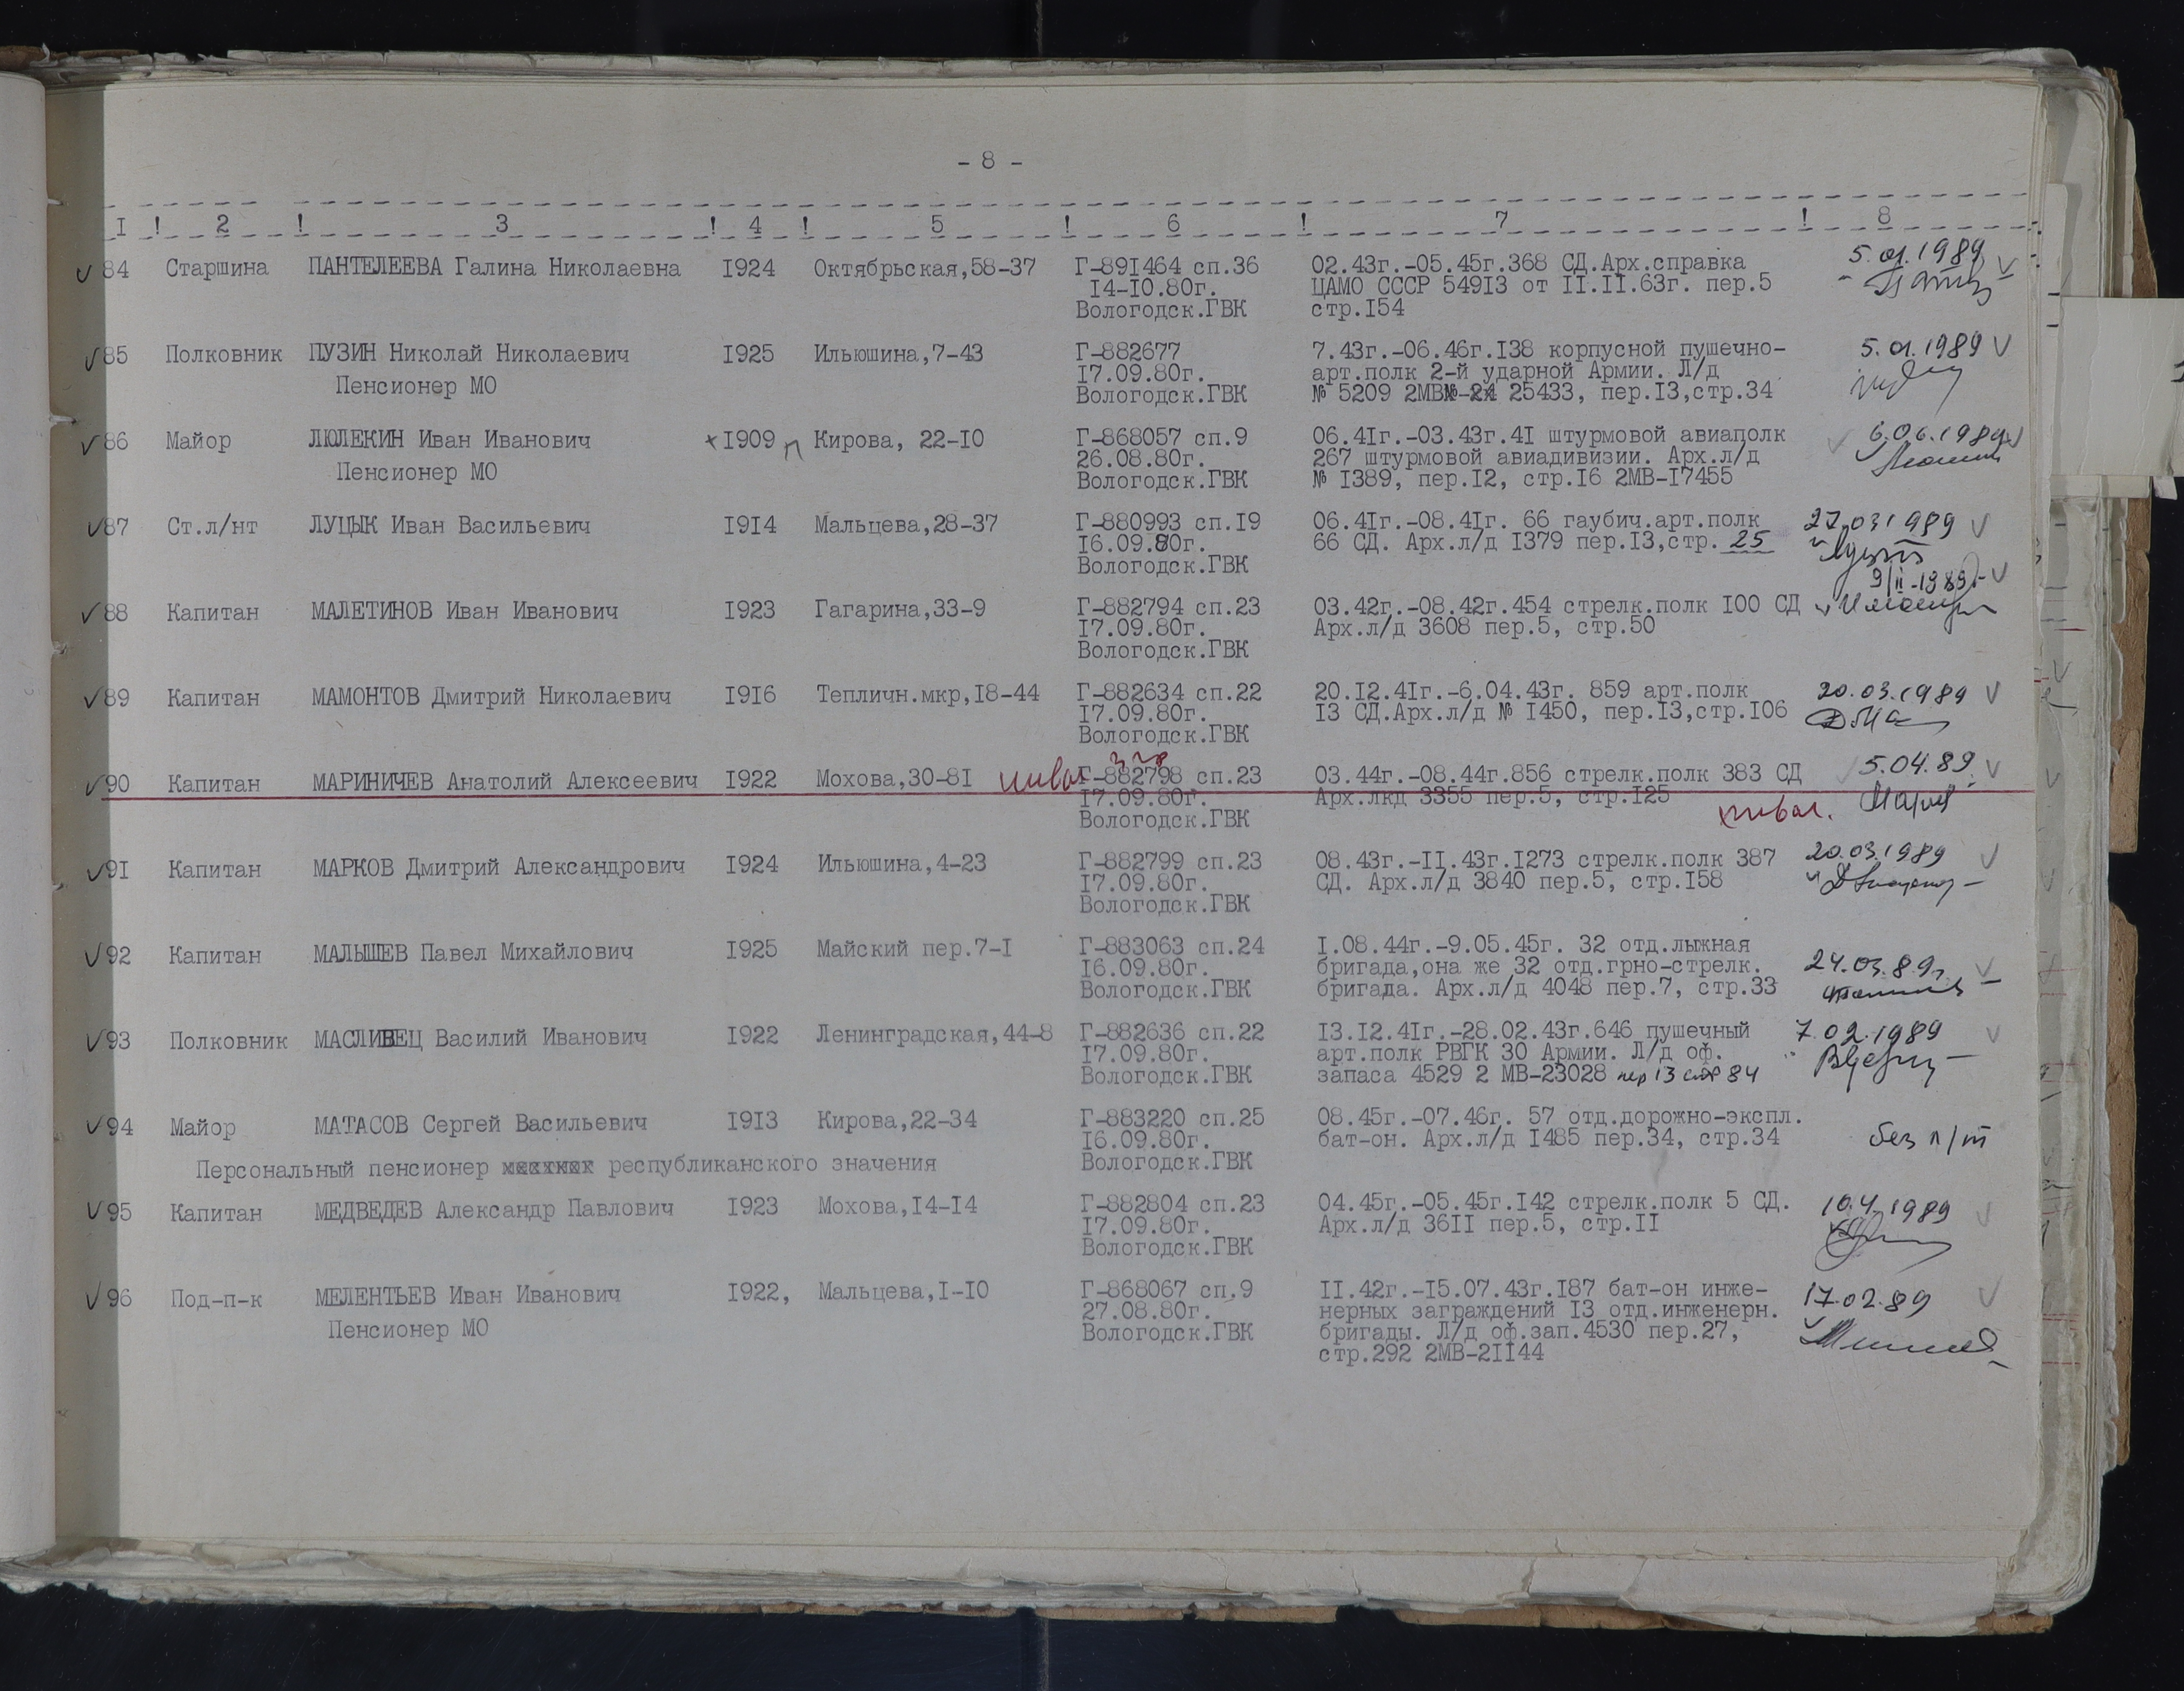 - 8 -
I ! 2 ! 3 ! 4 ! 5 ! 6 ! 7 ! 8
84 Старшина ПАНТЕЛЕЕВА Галина Николаевна I924 Октябрьская,58-37 Г-89I464 сп.36 02.43г.-05.45г.368 СД.Арх.справка 5.01.1989
I4-I0.80г. ЦАМО СССР 549I3 от II.II.63г. пер.5
Вологодск.ГВК стр.I54
85 Полковник ПУЗИН Николай Николаевич I925 Ильюшина,7-43 Г-882677 7.43г.-06.46г.I38 корпусной пушечно- 5.01.1989
I7.09.80г. арт.полк 2-й ударной Армии. Л/д
Пенсионер МО Вологодск.ГВК № 5209 2МВ 25433, пер.I3,стр.34
86 Майор ЛЮЛЕКИН Иван Иванович I909 Кирова, 22-I0 Г-868057 сп.9 06.4Iг.-03.43г.4I штурмовой авиаполк 6.06.1989
26.08.80г. 267 штурмовой авиадивизии. Арх.л/д
Пенсионер МО Вологодск.ГВК № I389, пер.I2, стр.I6 2МВ-I7455
87 Ст.л/нт ЛУЦЫК Иван Васильевич I9I4 Мальцева,28-37 Г-880993 сп.I9 06.4Iг.-08.4Iг. 66 гаубич.арт.полк 27.03 1989
I6.09.80г. 66 СД. Арх.л/д I379 пер.I3,стр. 25
Вологодск.ГВК
9/II-1989г
88 Капитан МАЛЕТИНОВ Иван Иванович I923 Гагарина,33-9 Г-882794 сп.23 03.42г.-08.42г.454 стрелк.полк I00 СД
I7.09.80г. Арх.л/д 3608 пер.5, стр.50
Вологодск.ГВК
89 Капитан МАМОНТОВ Дмитрий Николаевич I9I6 Тепличн.мкр,I8-44 Г-882634 сп.22 20.I2.4Iг.-6.04.43г. 859 арт.полк 20.03.1989
I7.09.80г. I3 СД.Арх.л/д № I450, пер.I3,стр.I06
Вологодск.ГВК
90 Капитан МАРИНИЧЕВ Анатолий Алексеевич I922 Мохова,30-8I инвал Г-882798 сп.23 03.44г.-08.44г.856 стрелк.полк 383 СД 5.04.89
I7.09.80г. Арх.лкд 3355 пер.5, стр.I25 инвал.
Вологодск.ГВК
9I Капитан МАРКОВ Дмитрий Александрович I924 Ильюшина,4-23 Г-882799 сп.23 08.43г.-II.43г.I273 стрелк.полк 387 20.03.1989
I7.09.80г. СД. Арх.л/д 3840 пер.5, стр.I58
Вологодск.ГВК
92 Капитан МАЛЫШЕВ Павел Михайлович I925 Майский пер.7-I Г-883063 сп.24 I.08.44г.-9.05.45г. 32 отд.лыжная
I6.09.80г. бригада,она же 32 отд.грно-стрелк. 24.03.89г.
Вологодск.ГВК бригада. Арх.л/д 4048 пер.7, стр.33
93 Полковник МАСЛИВЕЦ Василий Иванович I922 Ленинградская,44-8 Г-882636 сп.22 I3.I2.4Iг.-28.02.43г.646 пушечный 7.02.1989
I7.09.80г. арт.полк РВГК 30 Армии. Л/д оф.
Вологодск.ГВК запаса 4529 2 МВ-23028 пер 13 стр 84
94 Майор МАТАСОВ Сергей Васильевич I9I3 Кирова,22-34 Г-883220 сп.25 08.45г.-07.46г. 57 отд.дорожно-экспл.
I6.09.80г. бат-он. Арх.л/д I485 пер.34, стр.34 без п/т
Персональный пенсионер республиканского значения Вологодск.ГВК
95 Капитан МЕДВЕДЕВ Александр Павлович I923 Мохова,I4-I4 Г-882804 сп.23 04.45г.-05.45г.I42 стрелк.полк 5 СД. 10.4.1989
I7.09.80г. Арх.л/д 36II пер.5, стр.II
Вологодск.ГВК
96 Под-п-к МЕЛЕНТЬЕВ Иван Иванович I922, Мальцева,I-I0 Г-868067 сп.9 II.42г.-I5.07.43г.I87 бат-он инже- 17.02.89
27.08.80г. нерных заграждений I3 отд.инженерн.
Пенсионер МО Вологодск.ГВК бригады. Л/д оф.зап.4530 пер.27,
стр.292 2МВ-2II44